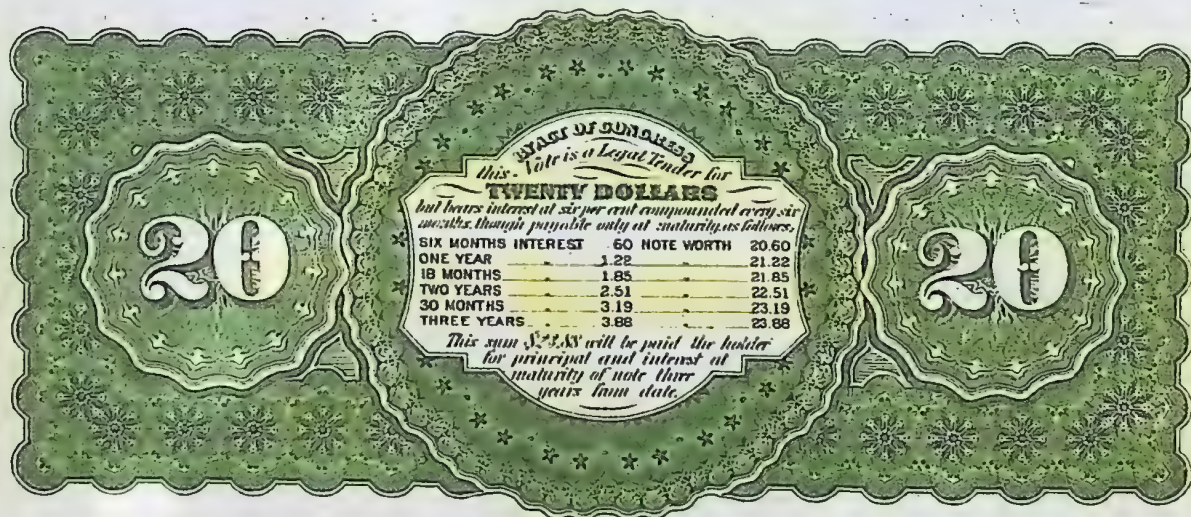 BY ACT OF CONGRESS
this Note is a Legal Tender for
TWENTY DOLLARS
but bears interest at six per cent compounded every six
months, though payable only at maturity, as follows,
SIX MONTHS INTEREST .60 NOTE WORTH 20.60
ONE YEAR " 1.22 " 21.22
18 MONTHS " 1.85 " 21.85
TWO YEARS " 2.51 " 22.51
30 MONTHS " 3.19 " 23.19
THREE YEARS " 3.88 " 23.88
This sum $23.88 will be paid the holder
for principal and interest at
maturity of note three
years from date.
20
20